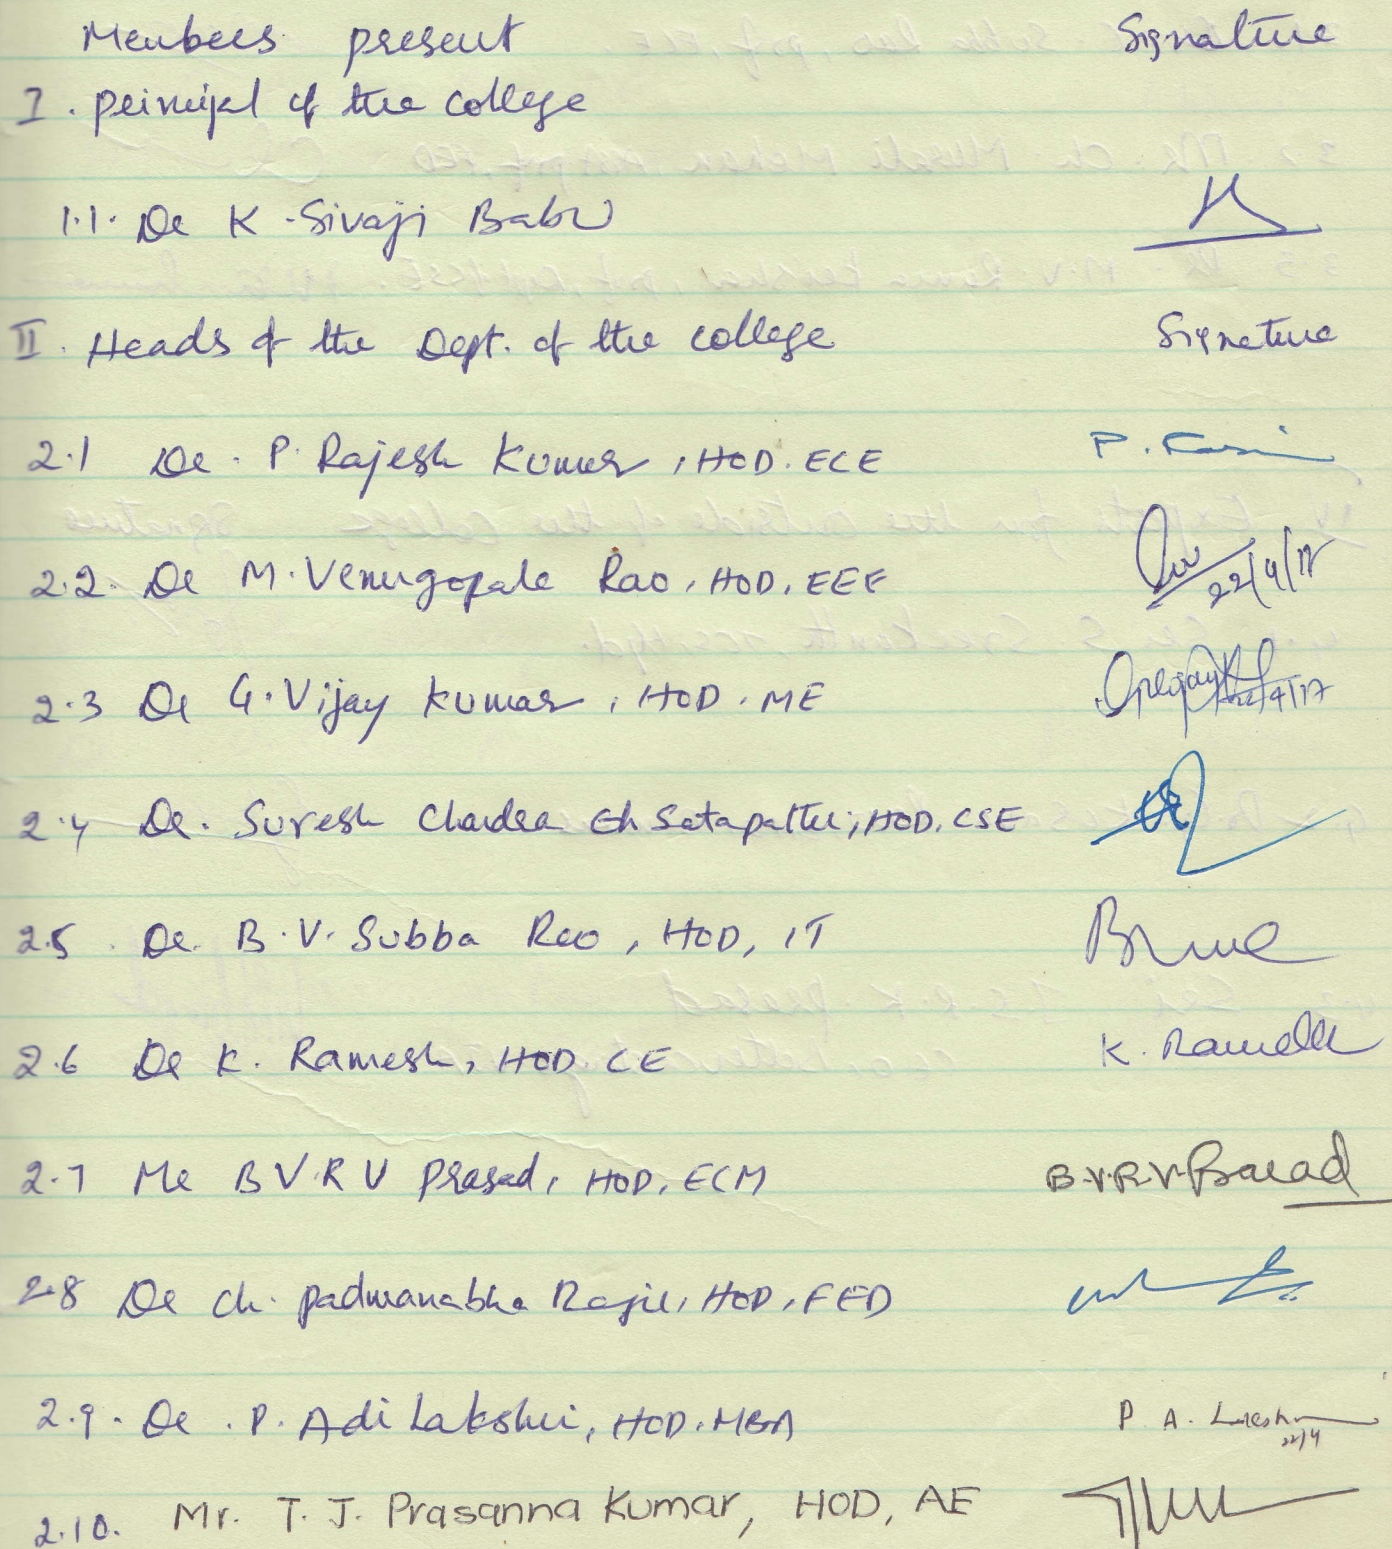 Members present Signature
I. principal of the college
1.1. Dr K. Sivaji Babu
II. Heads of the Dept. of the college Signature
2.1 Dr. P. Rajesh Kumar, HOD. ECE
2.2. Dr M. Venugopala Rao, HOD, EEE
22/4/17
2.3 Dr G. Vijay Kumar, HOD. ME
2.4 Dr. Suresh Chandra Satapathi, HOD, CSE
2.5 Dr. B.V. Subba Rao, HOD, IT
2.6 Dr K. Ramesh, HOD. CE K. Ramesh
2.7 Mr B V R V Prasad, HOD, ECM B.V.R.V. Prasad
2.8 Dr Ch. Padmanabha Raju, HOD, FED
2.9. Dr. P. Adi Lakshmi, HOD. MBA P A. Lakshmi
22/4
2.10. Mr. T. J. Prasanna Kumar, HOD, AE